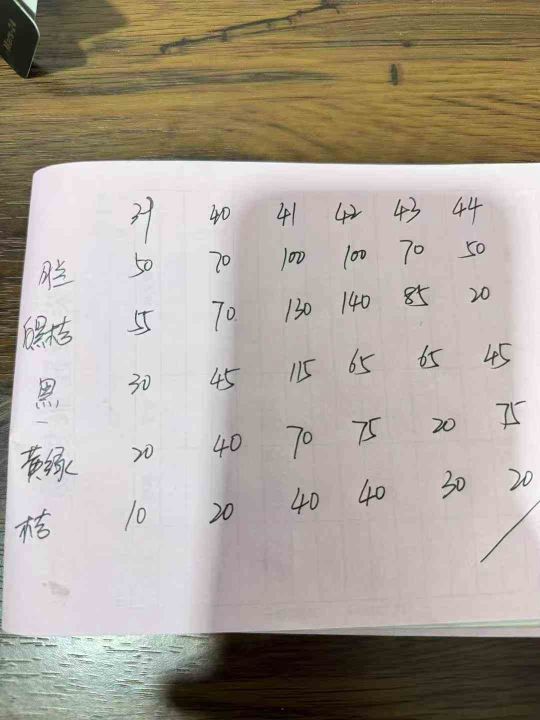 39 40 41 42 43 44
50 70 100 100 70 50
黑桔 55 70 130 140 85 20
黑 30 45 115 65 65 45
黄绿 20 40 70 75 20 35
桔 10 20 40 40 30 20